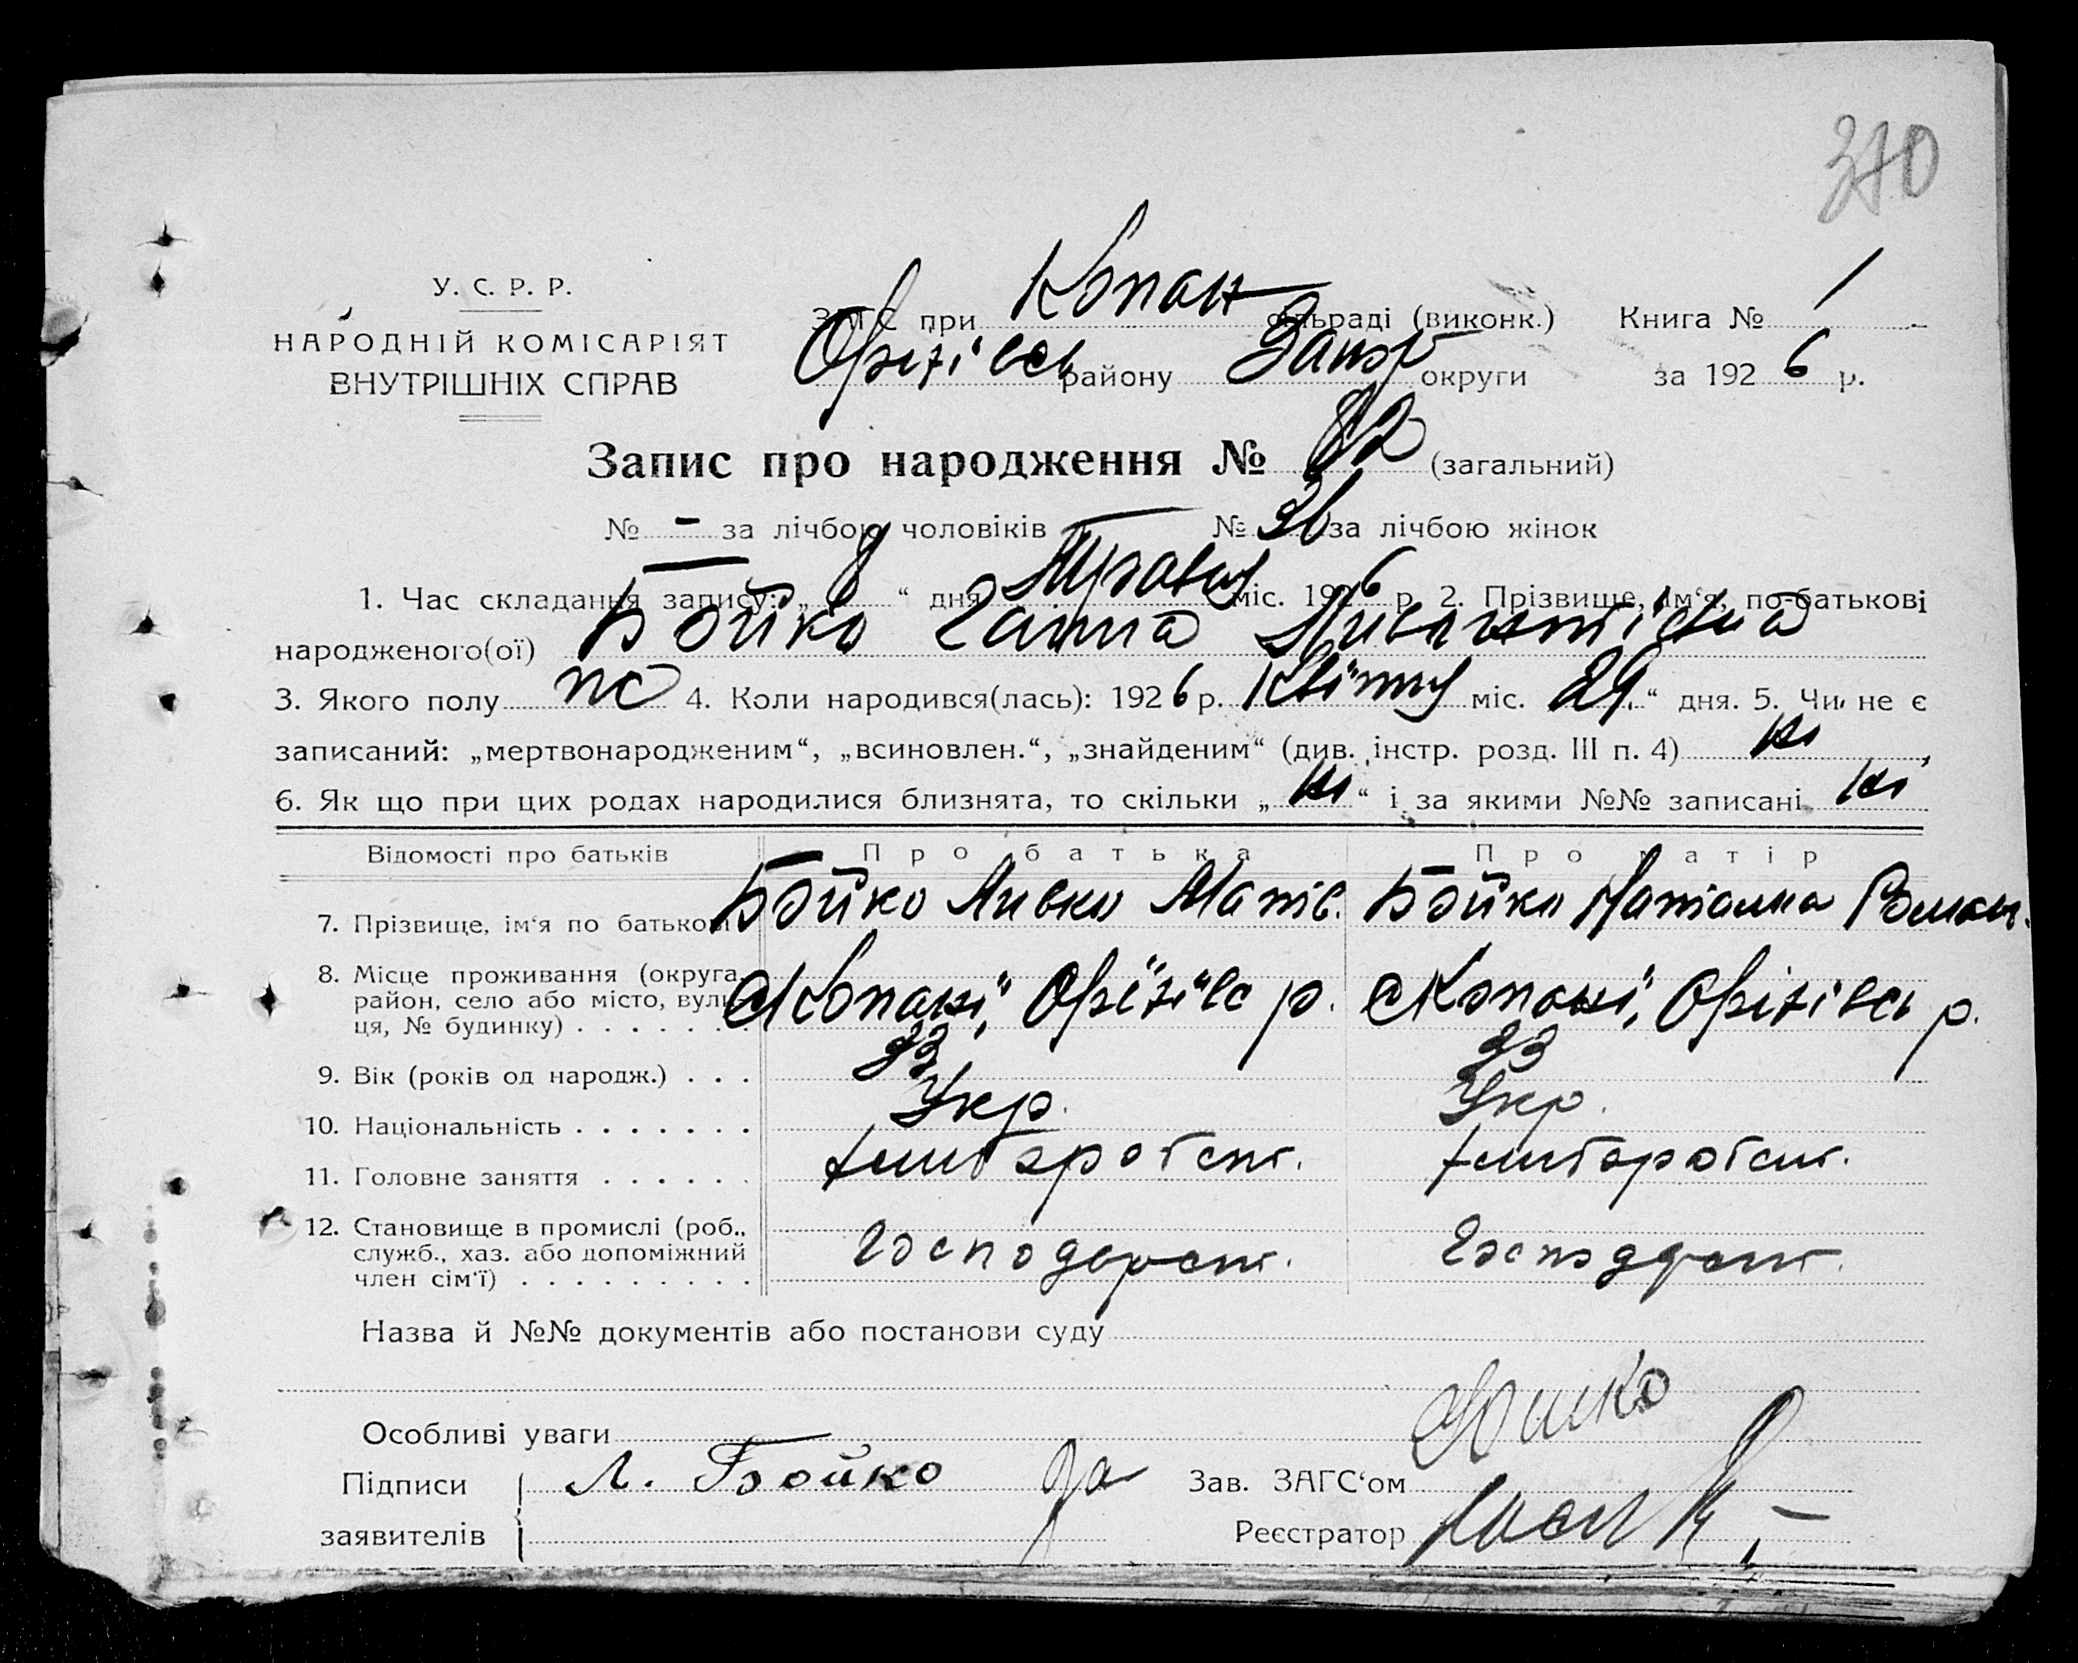 370
У. С. Р. Р.
НАРОДНІЙ КОМІСАРІЯТ
ВНУТРІШНІХ СПРАВ
ЗАГС при Копан сільраді (виконк.) Книга № 1
Оріхівсь району Запор округи за 1926 р.
Запис про народження № 82 (загальний)
№ - за лічбою чоловіків № 36 за лічбою жінок
1. Час складання запису: „ 8 “ дня Травня міс. 1926 р. 2. Прізвище, ім'я, по-батькові
народженого(ої) Бойко Ганна
3. Якого полу жс 4. Коли народився(лась): 1926 р. Квітня міс. 29 “ дня. 5. Чи не є
записаний: „мертвонародженим“, „всиновлен.“, „знайденим“ (див. інстр. розд. III п. 4) ні
6. Як що при цих родах народилися близнята, то скільки „ ні “ і за якими №№ записані ні
Відомості про батьків Про батька Про матір
7. Прізвище, ім'я по батькові Бойко Левко Матів. Бойко Наталка Роман.
8. Місце проживання (округа, район, село або місто, вулиця, № будинку) . . . . . . с Копані, Оріхівс р. с Копані, Оріхівсь р.
9. Вік (років од народж.) . . . 33 33
10. Національність . . . . . . . Укр. Укр.
11. Головне заняття . . . . . . хлібаробст. хлібаробст.
12. Становище в промислі (роб., служб., хаз. або допоміжний член сім'ї) . . . . . . . . . Господарст. Господарст.
Назва й №№ документів або постанови суду
Особливі уваги
Підписи Л. Бойко Зав. ЗАГС'ом
заявителів Реєстратор